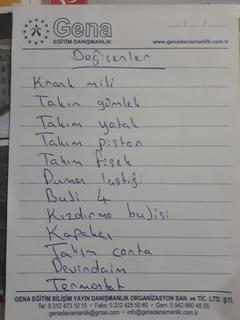 Gena
EĞİTİM DANIŞMANLIK
www.genadanismanlik.com.tr
Değişenler
Krank mili
Takım gömlek
Takım yatak
Takım piston
Takım fişek
Duman lastiği
Buji 4
Kızdırma bujisi
Kapaker
Takım conta
Devirdaim
Termostat
GENA EĞİTİM BİLİŞİM YAYIN DANIŞMANLIK ORGANİZASYON SAN. ve TİC. LTD. ŞTİ.
Tel: 0.312 473 10 15 • Faks: 0.312 425 50 60 • Gsm: 0.542 660 48 55
genadanismanlik@gmail.com • info@genadanismanlik.com.tr